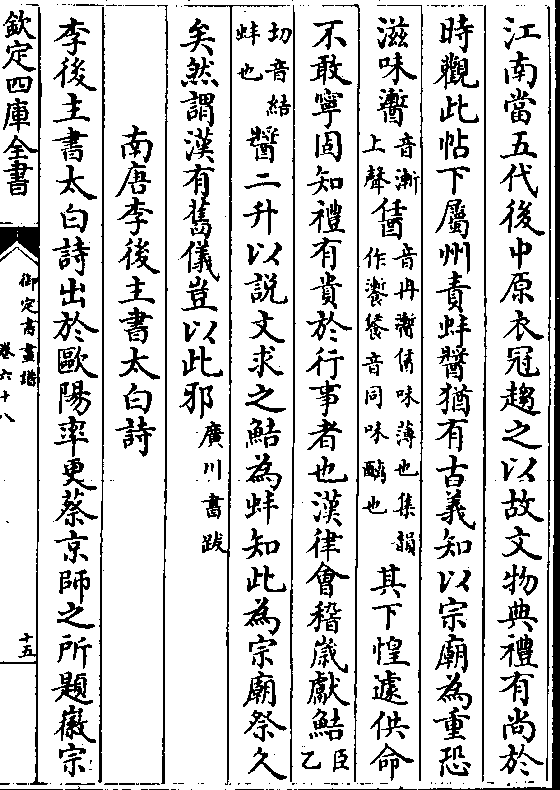 江南當五代後中原衣冠趨之以故文物典禮有尚於
時觀此帖下屬州責蚌醬猶有古義知以宗廟為重恐
滋味㵕音漸上聲𨣦音冉㵕𨣦味薄也集韻作㵕䭕音同味醨也其下惶遽供命
不敢寧固知禮有貴於行事者也漢律會稽歲獻鮚臣乙
切音結蚌也醬二升以説文求之鮚為蚌知此為宗廟祭久
矣然謂漢有舊儀豈以此邪廣川書跋
南唐李後主書太白詩
李後主書太白詩出於歐陽率更蔡京師之所題徽宗
欽定四庫全書
御定書畫譜
卷六十八
十五